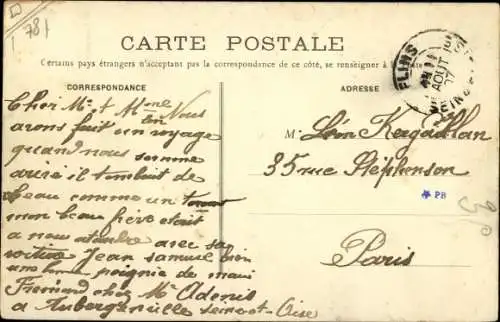 78
CARTE POSTALE
Certains pays étrangers n'acceptant pas la correspondance de ce côté, se renseigner à la Poste
CORRESPONDANCE
ADRESSE
FLINS
AOUT 07
SEINE
Cher Mr et Mme
Léon Nous
avons fait un voyage
quand nous somme
arivé il tombait de
leau comme un
mon beau frère etait
a nous atandre avec sa
voiture Jean samuse bien
une bonne poignie de main
chez Mr Adonis
a Aubergenville Seine et Oise
M. Léon
35 rue Stéphenson
Paris
PB